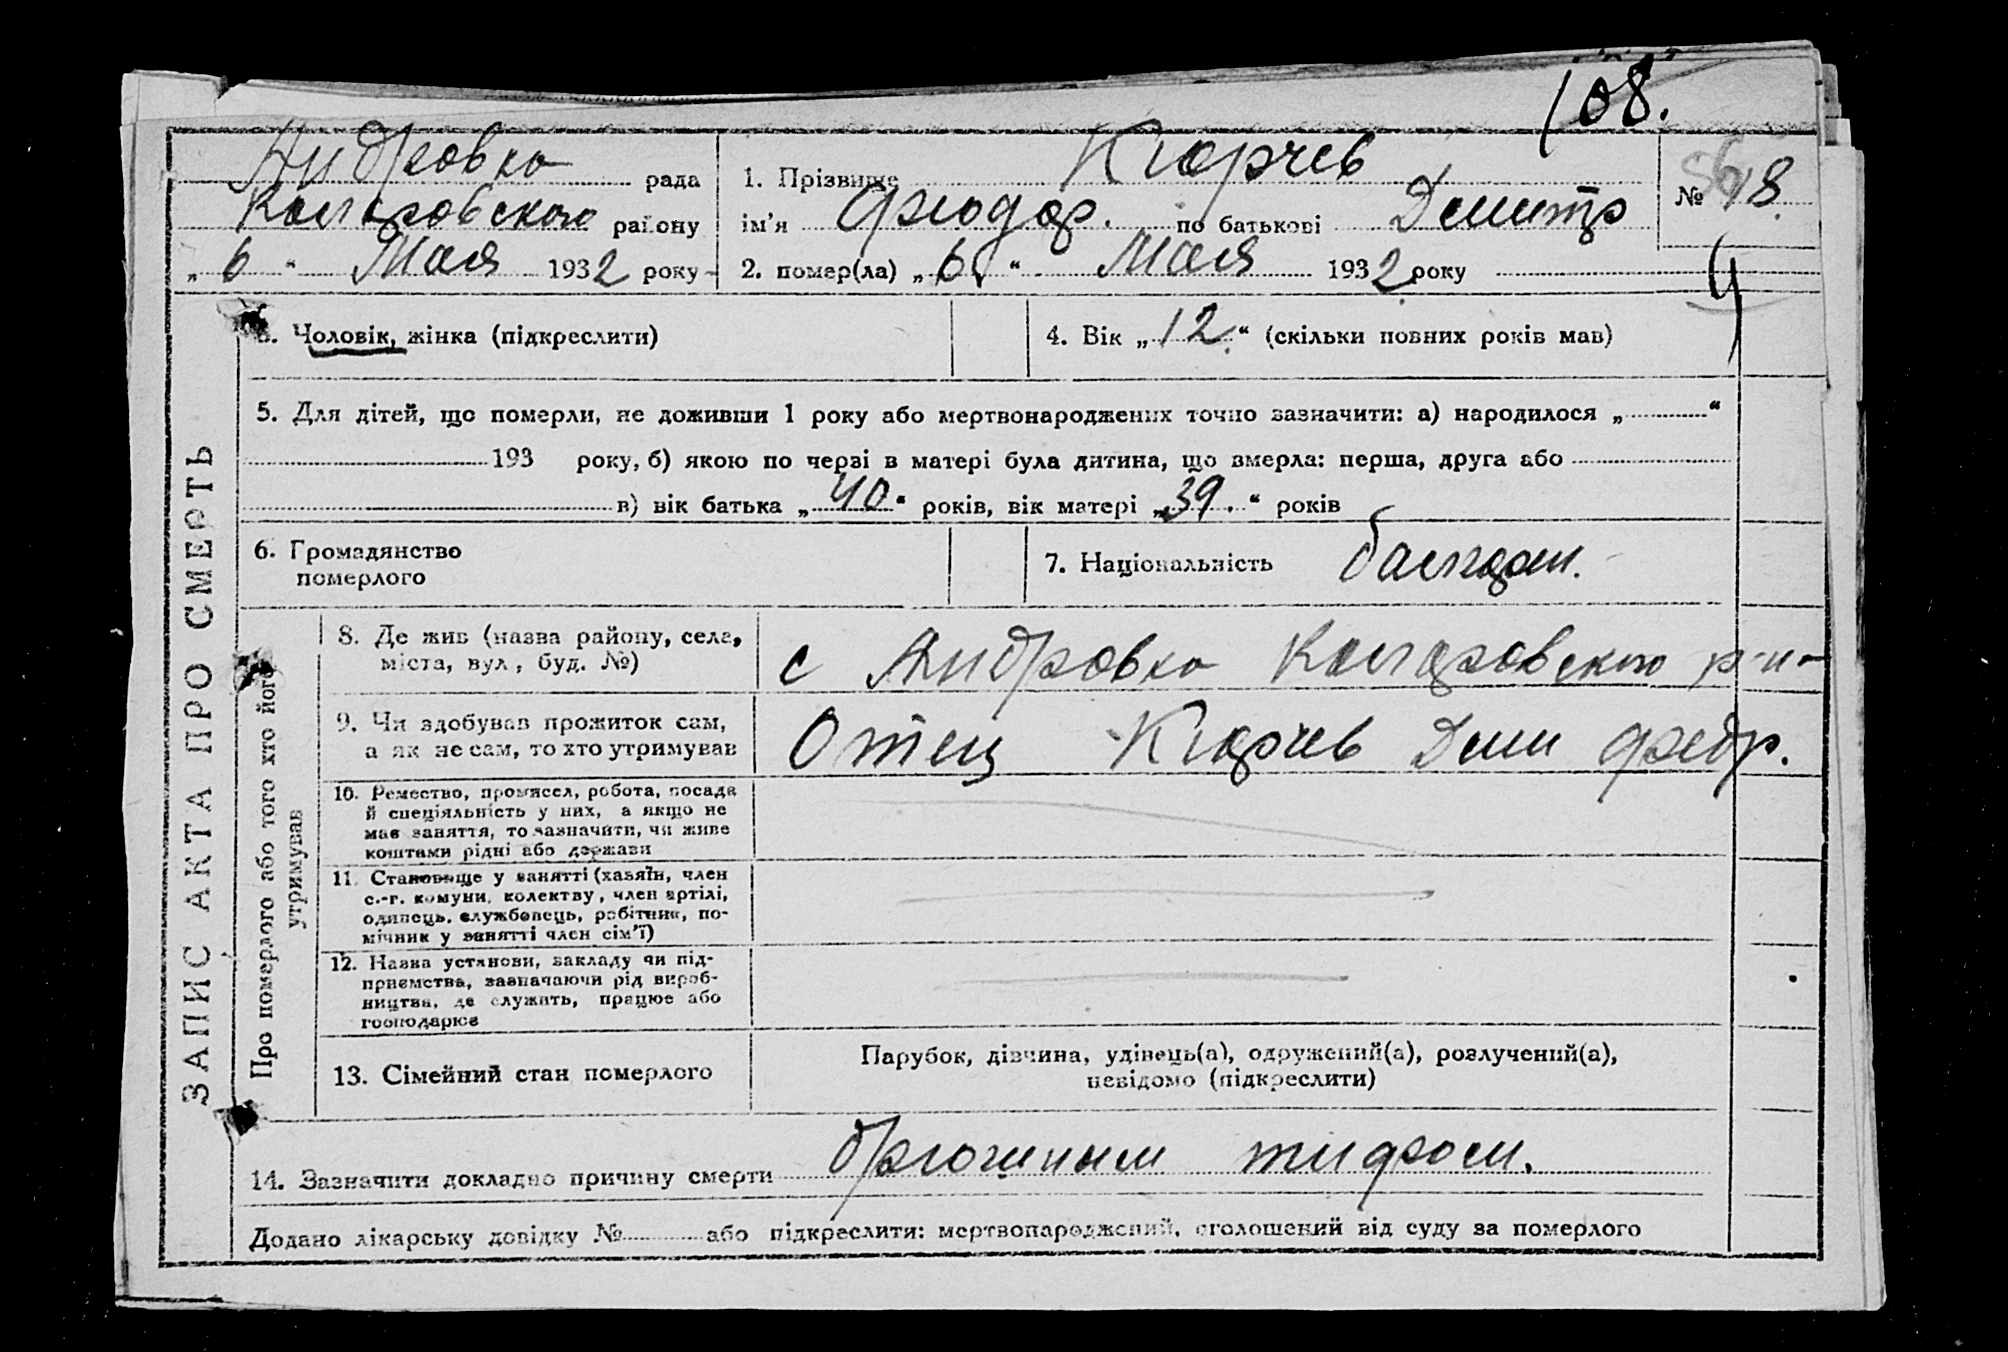 108.
Андровка рада
Коларовского району
„ 6 “ Мая 1932 року
1. Прізвище Кюрчев
ім'я Фюдор. по батькові Дмитр
2. помер(ла) „ 6 “ Мая 1932 року
№ 18.
ЗАПИС АКТА ПРО СМЕРТЬ
3. Чоловік, жінка (підкреслити)
4. Вік „ 12 “ (скільки повних років мав)
5. Для дітей, що померли, не доживши 1 року або мертвонароджених точно зазначити: а) народилося „ “
193 року, б) якою по черзі в матері була дитина, що вмерла: перша, друга або
в) вік батька „ 40 “ років, вік матері „ 39. “ років
6. Громадянство
померлого
7. Національність болгар.
Про померлого або того хто його
утримував
8. Де жив (назва району, села,
міста, вул., буд. №)
с Андровка Коларовского р-н-
9. Чи здобував прожиток сам,
а як не сам, то хто утримував
Отец Кюрчев Дми Федр.
10. Ремество, промисел, робота, посада
й спеціяльність у них, а якщо не
мав заняття, то зазначити, чи живе
коштами рідні або держави
11. Становище у занятті (хазяїн, член
с.-г. комуни, колективу, член артілі,
одинець, службовець, робітник, по-
мічник у занятті член сім'ї)
12. Назва установи, закладу чи під-
приємства, зазначаючи рід вироб-
ництва, де служить, працює або
господарює
13. Сімейний стан померлого
Парубок, дівчина, удівець(а), одружений(а), розлучений(а),
невідомо (підкреслити)
14. Зазначити докладно причину смерти брюшным тифом.
Додано лікарську довідку № або підкреслити: мертвонароджений, оголошений від суду за померлого